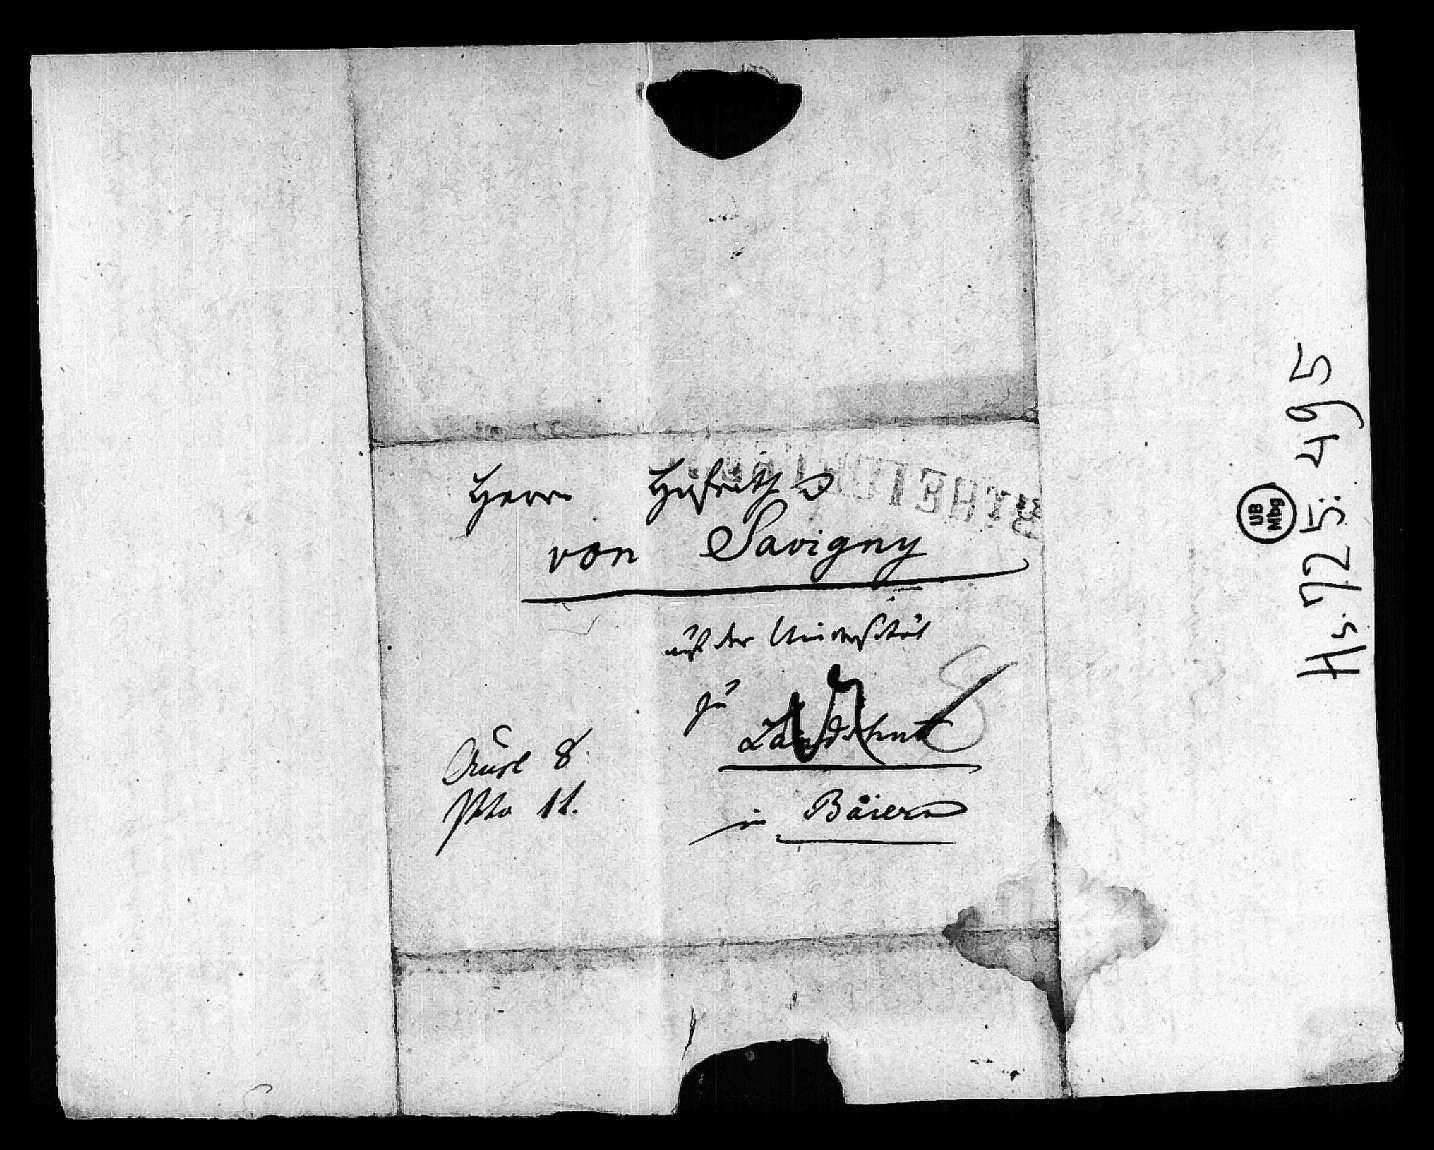 Herrn Hofrath
von Savigny
auf der Universität
zu
Landshut
in Baiern
8
11.
UB
Mbg
Hs. 725: 495